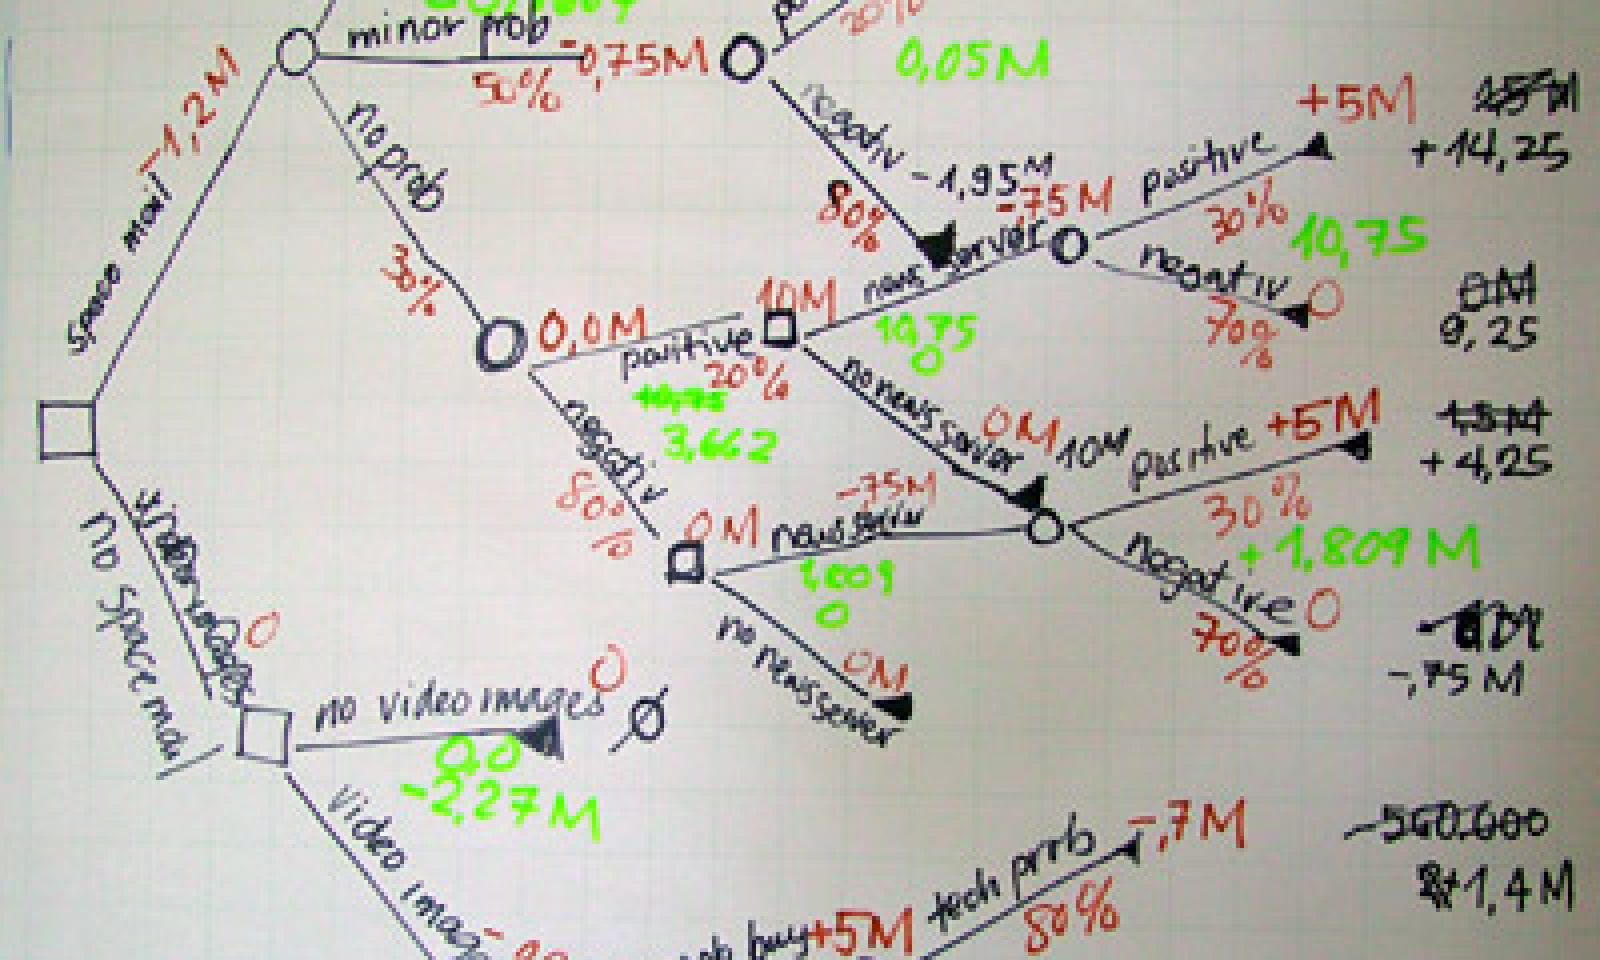 minor prob
-0,75M
50%
20%
0,05M
-1,2M
space mail
no prob
30%
negativ
80%
-1,95M
-,75M
positive
+5M
+14,25
30%
10,75
negativ
70%
0
0M
9,25
0,0M
positive
20%
+0,75
3,662
10M
news server
10,75
0
no news server
0M
10M
positive
+5M
+4,25
30%
+1,809M
negative
0
70%
-,75M
negativ
80%
0M
-,75M
0
no newsserver
0M
no space mail
0
no video images
0
Ø
0,0
-2,27M
video imag
buy
+5M
tech prob
-,7M
80%
-560.000
+1,4M